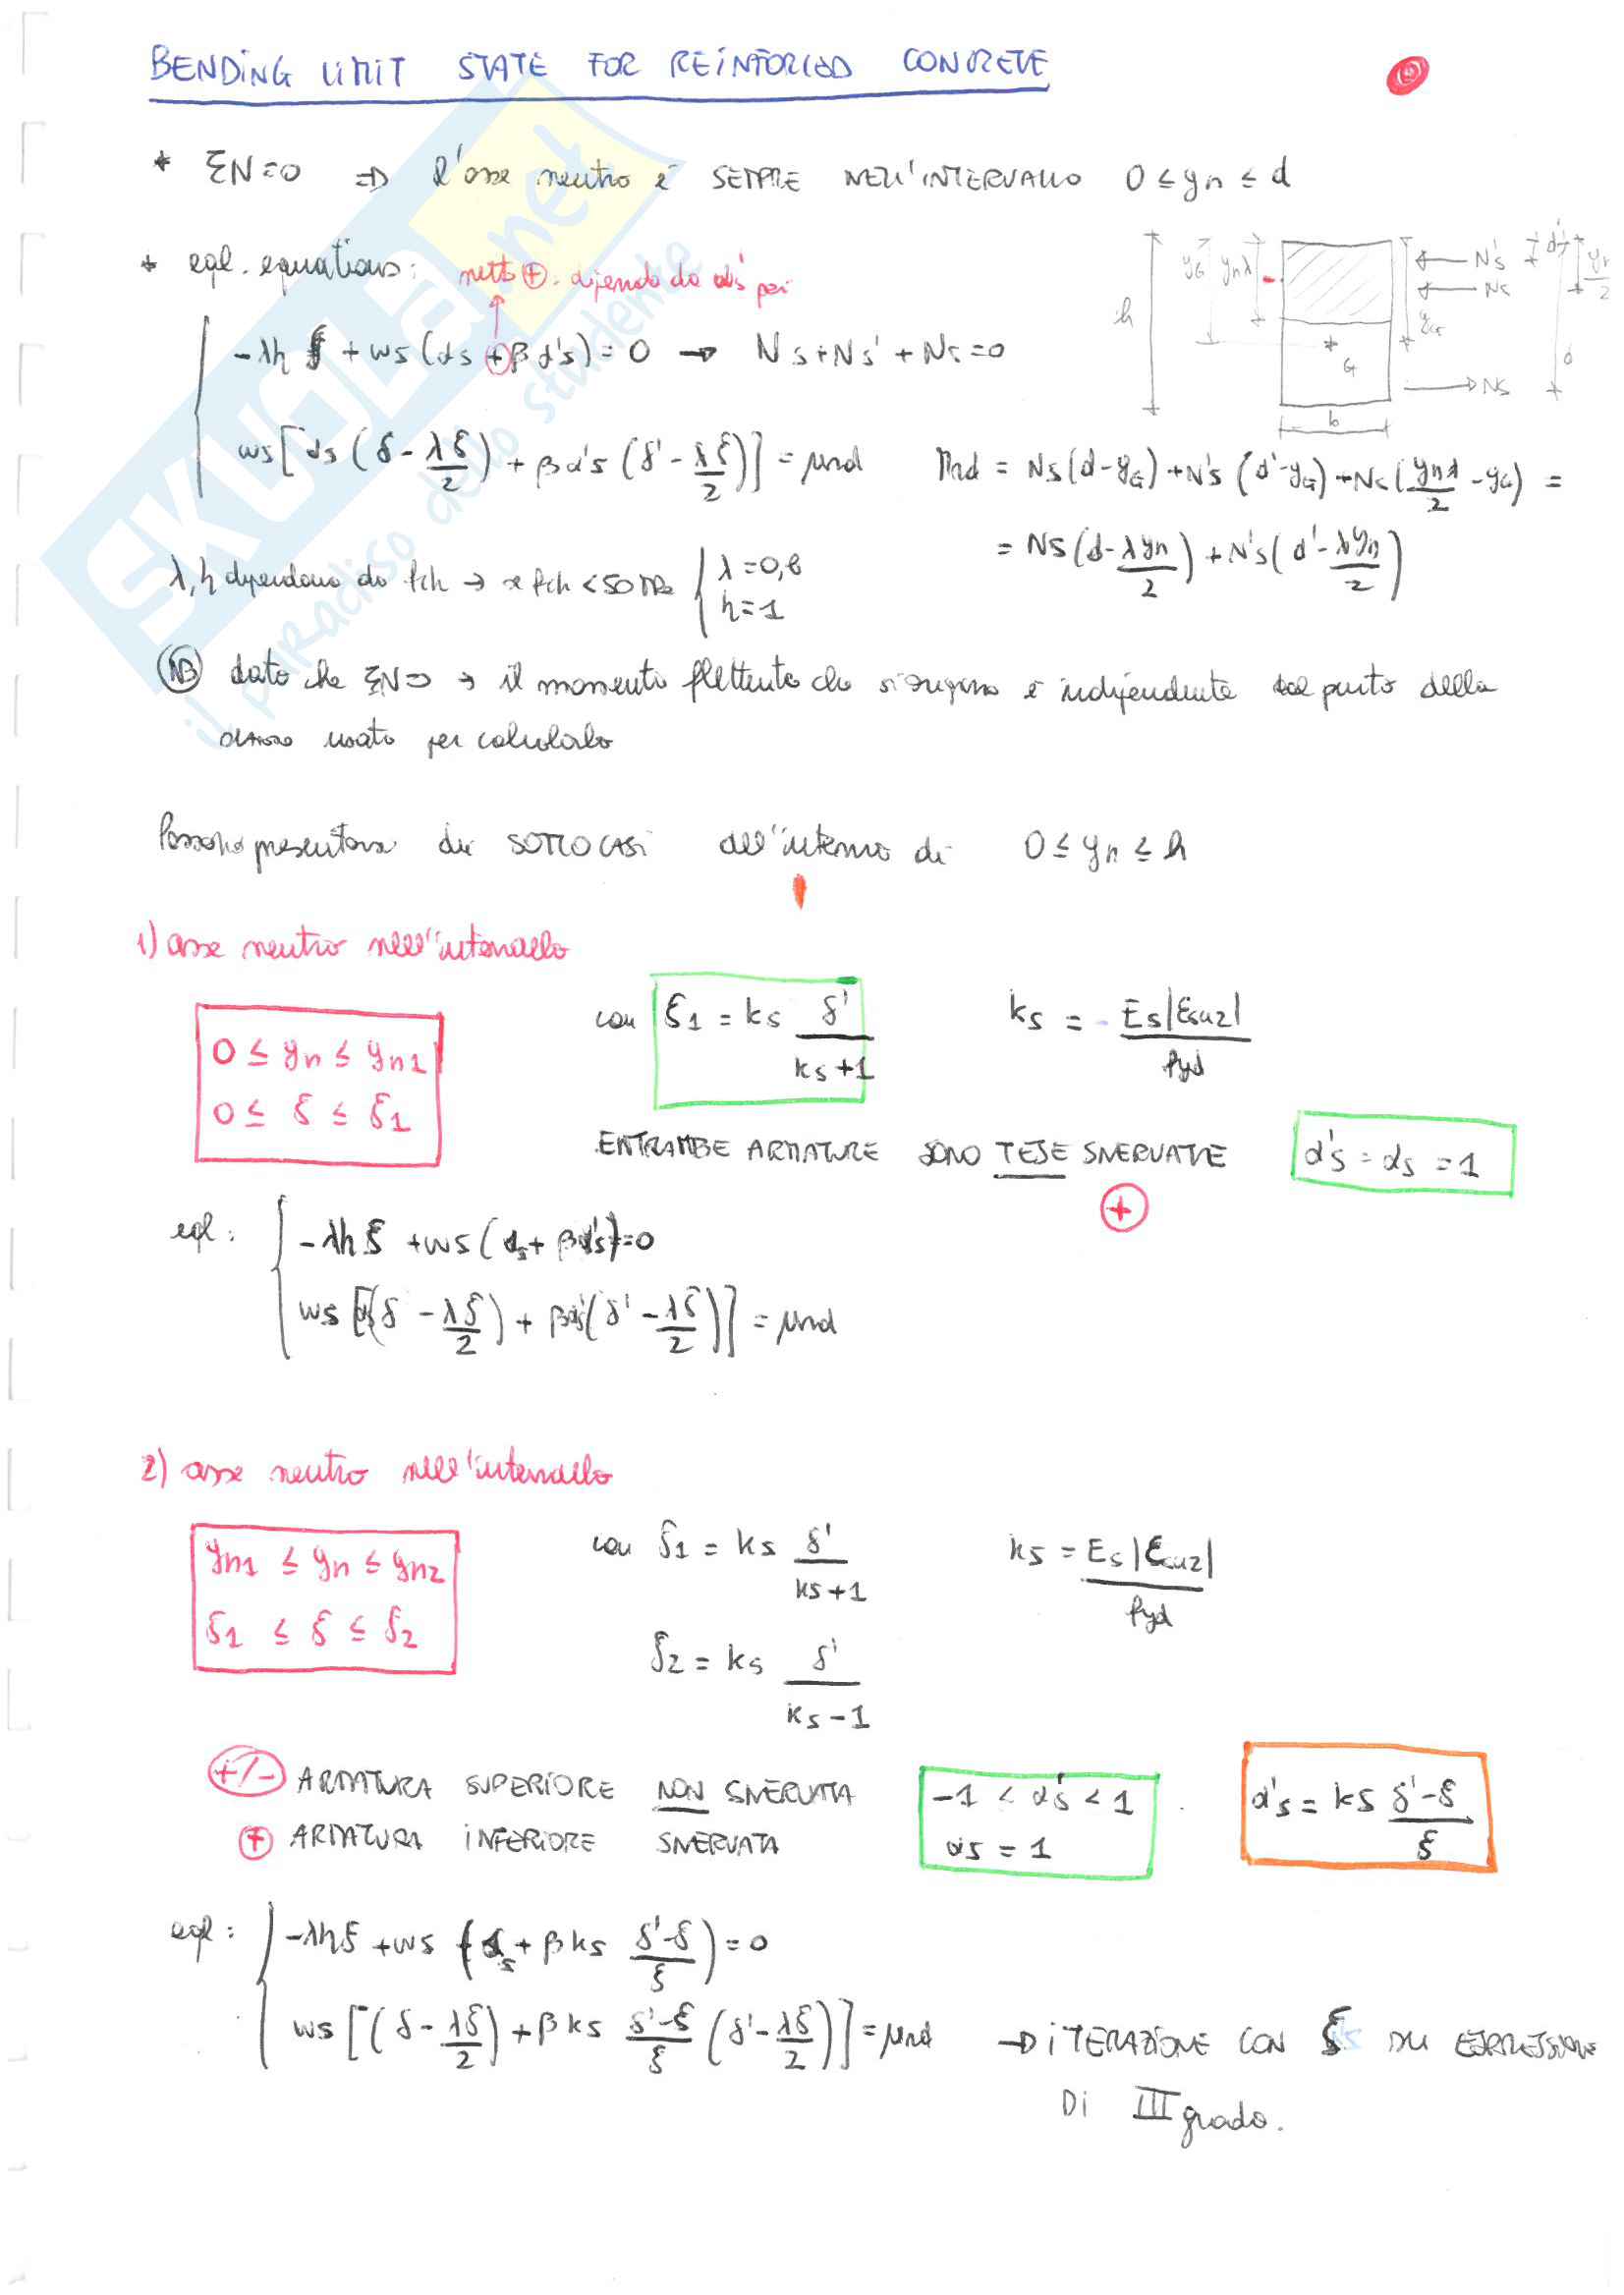 BENDING LIMIT STATE FOR REINFORCED CONCRETE
* ΣN=0 ⇒ l'asse neutro è SEMPRE NELL'INTERVALLO 0 ≤ yn ≤ d
* eql. equations: metto ⊕. dipende da α's poi
-λh ξ + ws (αs + β α's) = 0 → Ns + Ns' + Nc = 0
ws [αs (δ - λξ/2) + β α's (δ' - λξ/2)] = μrd
Mrd = Ns (d-yG) + N's (d'-yG) + Nc (ynλ/2 - yG) =
= Ns (d - λyn/2) + N's (d' - λyn/2)
h yG ynλ N's Nc Ns G b d d' yn/2
λ, h dipendono da fck → se fck < 50 MPa λ = 0,8
h = 1
NB dato che ΣN=0 → il momento flettente che si origina è indipendente dal punto della
usato per calcolarlo
Possono presentarsi due SOTTOCASI all'interno di 0 ≤ yn ≤ h
1) asse neutro nell'intervallo
0 ≤ yn ≤ yn1
0 ≤ ξ ≤ ξ1
con ξ1 = ks δ'/(ks+1) ks = Es|εcu2|/fyd
ENTRAMBE ARMATURE SONO TESE SNERVATE α's = αs = 1
+
eql: -λhξ + ws (αs + βα's) = 0
ws [αs(δ - λξ/2) + βα's(δ' - λξ/2)] = μrd
2) asse neutro nell'intervallo
yn1 ≤ yn ≤ yn2
ξ1 ≤ ξ ≤ ξ2
con ξ1 = ks δ'/(ks+1) ks = Es|εcu2|/fyd
ξ2 = ks δ'/(ks-1)
+/- ARMATURA SUPERIORE NON SNERVATA
+ ARMATURA INFERIORE SNERVATA
-1 < α's < 1
αs = 1
α's = ks (δ'-ξ)/ξ
eql: -λhξ + ws (αs + β ks (δ'-ξ)/ξ) = 0
ws [(δ - λξ/2) + β ks (δ'-ξ)/ξ (δ' - λξ/2)] = μrd → ITERAZIONE CON ξ ESPRESSIONE
DI III grado.
SKUOLA.net
il paradiso dello studente